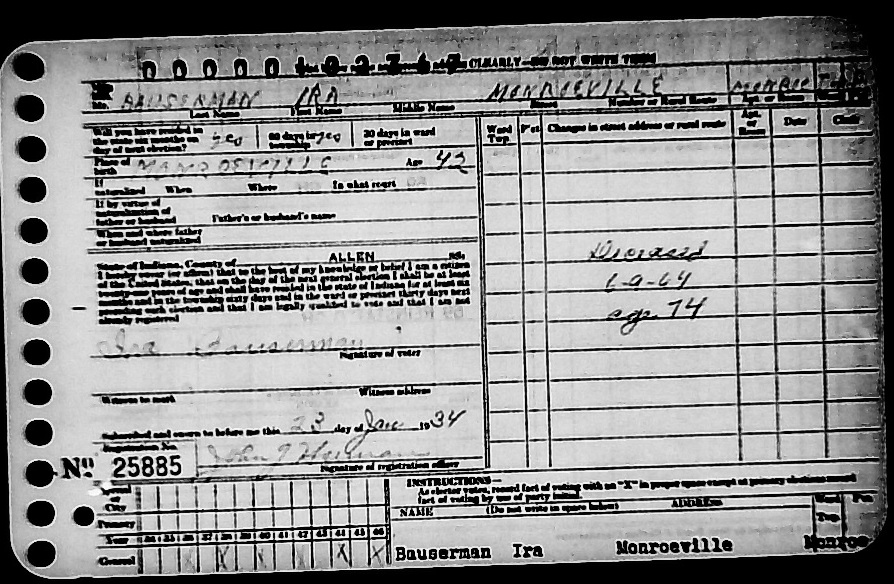 CLEARLY—DO NOT WRITE THIS
BAUSERMAN IRA MONROEVILLE MONROE
Last Name First Name Middle Name Street Number or Rural Route Apt. or Room
Will you have resided in
the state six months on
day of next election? yes 60 days in township? yes 30 days in ward or precinct
Place of birth MONROEVILLE Age 42
If naturalized When Where In what court
If by virtue of
naturalization of
father or husband Father's or husband's name
When and where father
or husband naturalized
State of Indiana, County of ALLEN SS:
I hereby swear (or affirm) that to the best of my knowledge or belief I am a citizen
of the United States, that on the day of the next general election I shall be at least
twenty-one years of age and shall have resided in the state of Indiana for at least six
months and in the township sixty days and in the ward or precinct thirty days next
preceding such election and that I am legally qualified to vote and that I am not
already registered
Ira Bauserman
Signature of voter
Witness to mark Witness address
Subscribed and sworn to before me this 23 day of Jan 1934
Registration No.
No 25885 John
Signature of registration officer
Ward Twp. P'ct Changes in street address or rural route Apt. or Room Date Clerk
Deceased
1-9-64
age 74
City
Primary
Year 34 35 36 37 38 39 40 41 42 43 44 45 46
General X X X X X
INSTRUCTIONS—
As elector votes, record fact of voting with an "X" in proper space except at primary elections record
fact of voting by use of party initial.
NAME (Do not write in space below) ADDRESS Ward Twp. Pct.
Bauserman Ira Monroeville Monroe